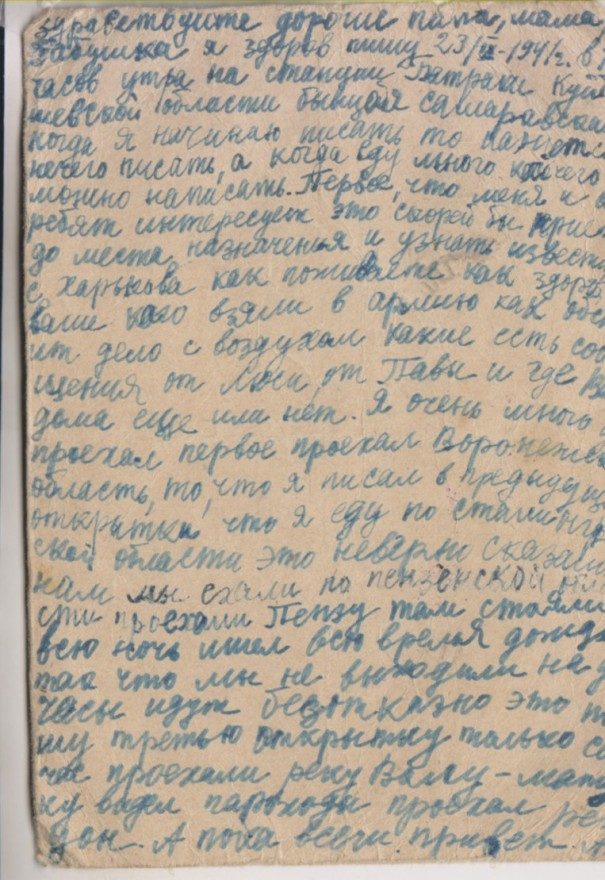 Здраветвуйте дорогие папа, мама
бабушка я здоров пишу 23/ -1941г. в
часов утра на станции Батраки Куй
шевской области бывшой самаравска
когда я начинаю писать то кажется
нечего писать, а когда еду много кой чего
можно написать. Первое, что меня и
ребят интересует это скорей бы прие
до места назначения и узнать извест
с Харькова как поживаете как здоров
ваше кого взяли в армию как обс
ит дело с воздухом какие есть соо
щения от Люси, от Павы и где
дома еще или нет. Я очень много
проехал первое проехал Воронежс
область, то, что я писал в предыдущ
открытки что я еду по сталингр
ской области это неверно сказали
нам мы ехали по пензенской обла
сти проехали Пензу там стояли
всю ночь ишел всю время дождь
так что мы не выходили на
часы идут безотказно это
шу третью открытку только
час проехали реку Валгу-мату
ку видел пароходы проехал ре
Дон. А пока всего привет.